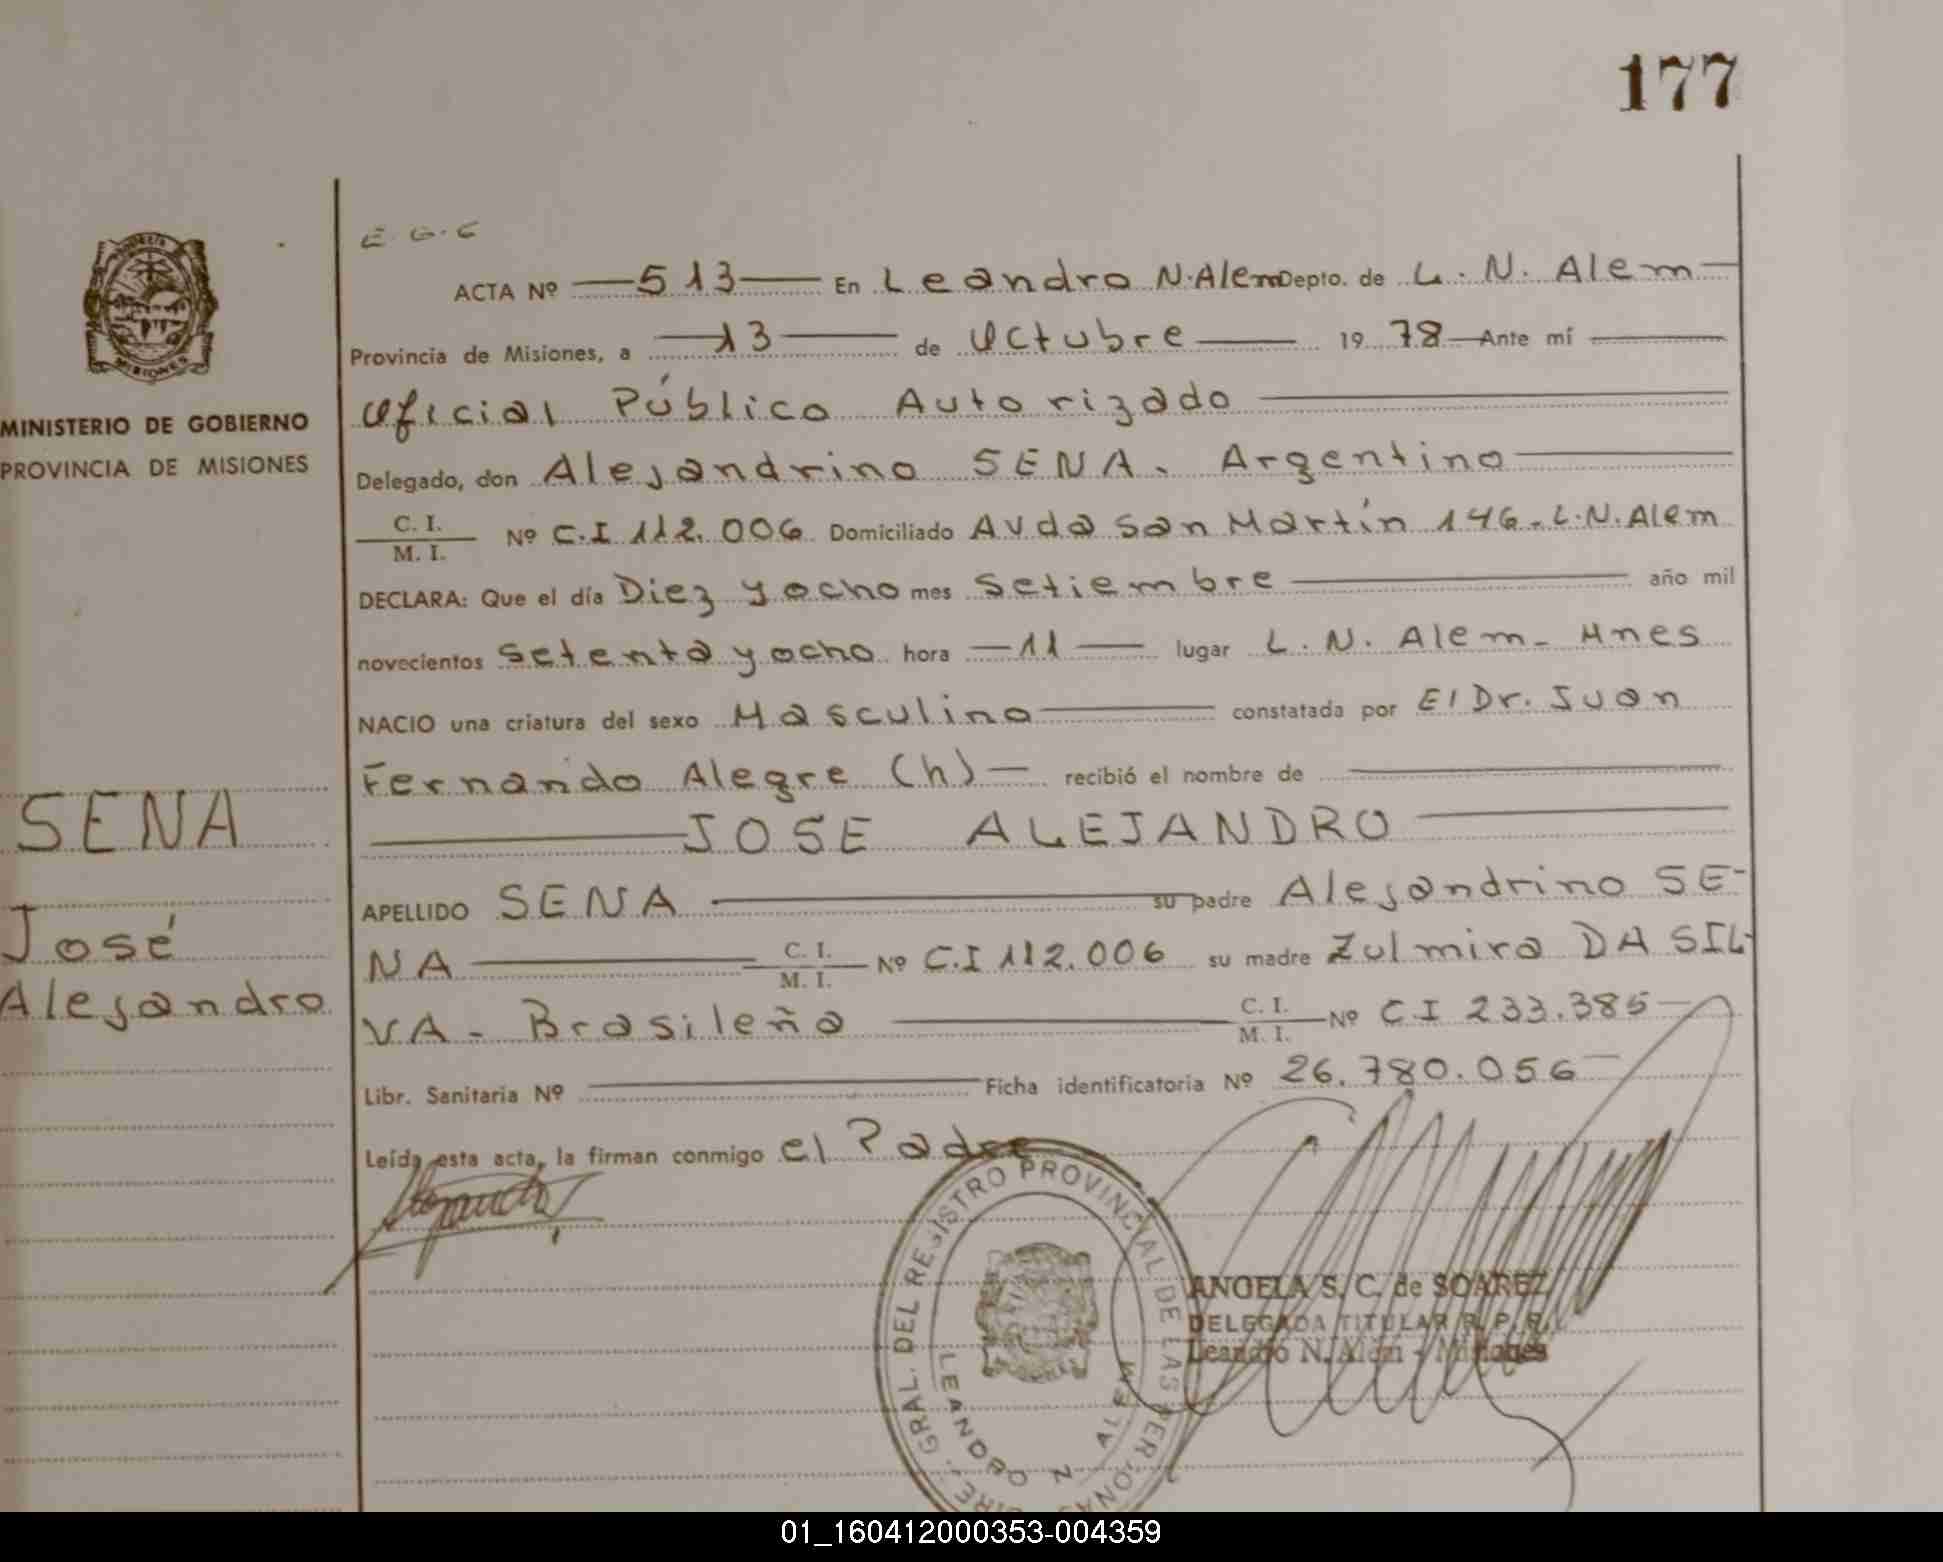 177
MISIONES
MINISTERIO DE GOBIERNO
PROVINCIA DE MISIONES
SENA
José
Alejandro
E. G. C
ACTA Nº 513 En Leandro N. Alem Depto. de L. N. Alem
Provincia de Misiones, a 13 de Octubre 1978 Ante mí
Oficial Público Autorizado
Delegado, don Alejandrino SENA. Argentino
C. I.
M. I. Nº C.I 112.006 Domiciliado Avda San Martín 146-L.N.Alem
DECLARA: Que el día Diez y ocho mes Setiembre año mil
novecientos Setenta y ocho hora 11 lugar L. N. Alem- Mnes
NACIO una criatura del sexo Masculino constatada por El Dr. Juan
Fernando Alegre (h) recibió el nombre de
JOSE ALEJANDRO
APELLIDO SENA su padre Alejandrino SE-
NA C. I. M. I. Nº C.I 112.006 su madre Zulmira DA SIL-
VA - Brasileña C. I. M. I. Nº C I 233.385
Libr. Sanitaria Nº Ficha identificatoria Nº 26.780.056
Leída esta acta, la firman conmigo el Padre
GRAL. DEL REGISTRO PROVINCIAL DE LAS PERSONAS
LEANDRO N ALEM
ANGELA S. C. de SOAREZ
DELEGADA TITULAR R. P. P.
Leandro N. Alem - Misiones
01_160412000353-004359